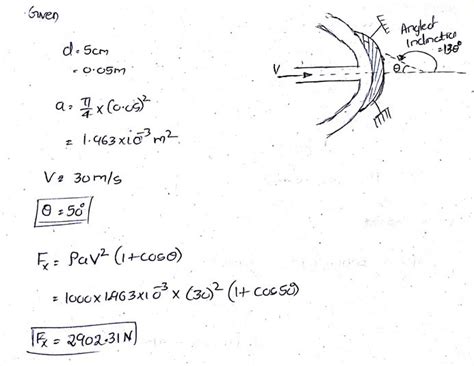 Given
d = 5cm
= 0.05m
a = π/4 × (0.05)²
= 1.963×10⁻³ m²
V = 30 m/s
θ = 50°
Fₓ = ρaV² (1+cosθ)
= 1000×1.963×10⁻³ × (30)² (1+cos50)
Fₓ = 2902.31N
V
θ
Angle of
Inclination
=130°